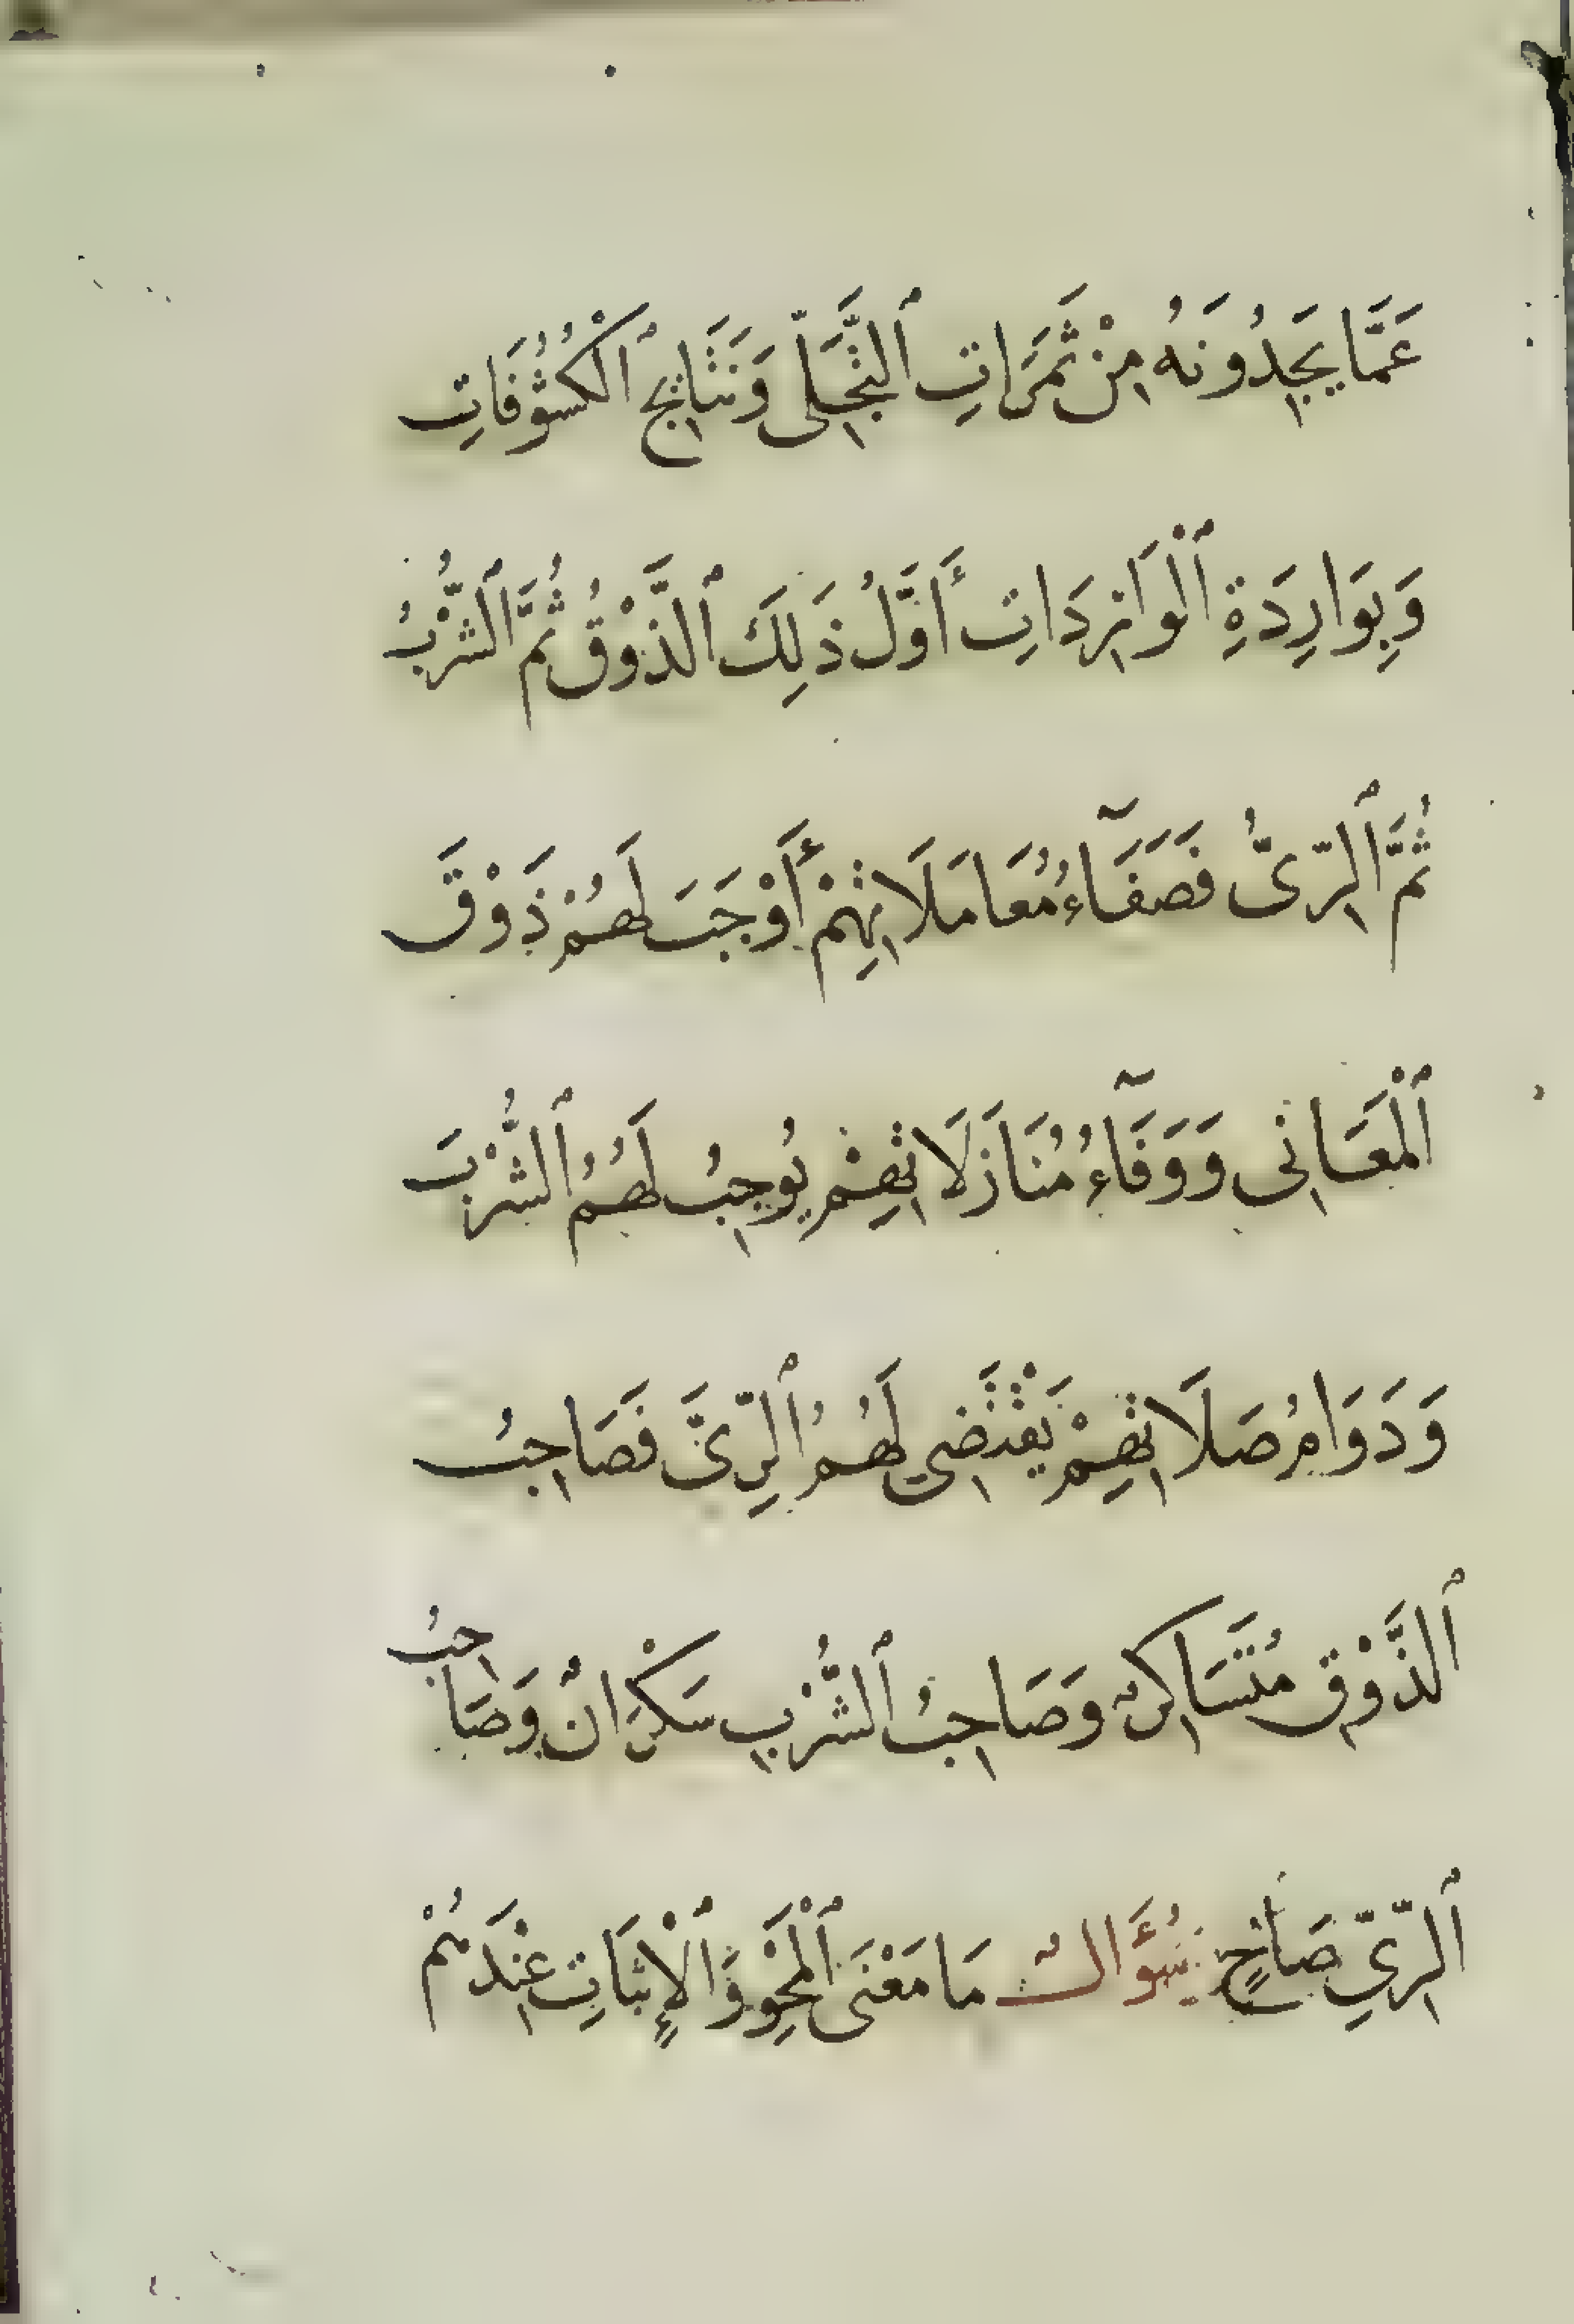 عَمَّا يَجِدُونَهُ مِنْ ثَمَرَاتِ ٱلتَّجَلِّى وَنَتَائِجِ ٱلْكُشُوفَاتِ
وَبِوَارِدَةِ ٱلْوَارِدَاتِ أَوَّلُ ذَلِكَ ٱلذَّوْقُ ثُمَّ ٱلشُّرْبُ
ثُمَّ ٱلرِّىُّ فَصَفَآءُ مُعَامَلَاتِهِمْ أَوْجَبَ لَهُمْ ذَوْقَ
ٱلْمَعَانِى وَوَفَآءُ مُنَازَلَاتِهِمْ يُوجِبُ لَهُمُ ٱلشُّرْبَ
وَدَوَامُ صَلَاتِهِمْ يَقْتَضِى لَهُمُ ٱلرِّىَّ فَصَاحِبُ
ٱلذَّوْقِ مُتَسَاكِرٌ وَصَاحِبُ ٱلشُّرْبِ سَكْرَانٌ وَصَاحِبُ
ٱلرِّيِّ صَاحٍ سُؤَالٌ مَا مَعْنَى ٱلْمَحْوِ وَٱلْإِثْبَاتِ عِنْدَهُمْ